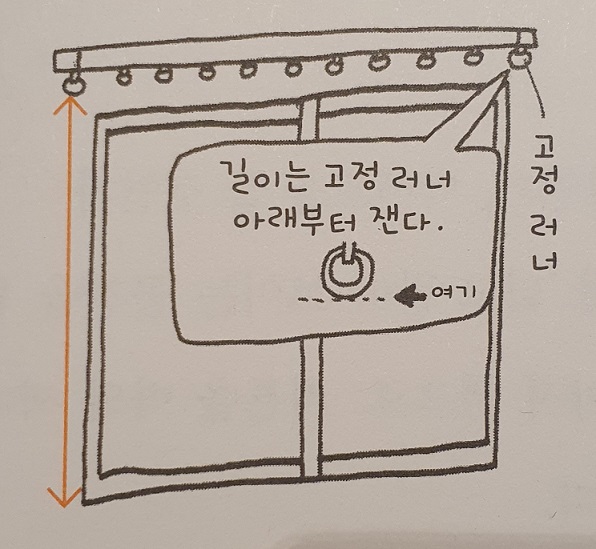 길이는 고정 러너
아래부터 잰다.
여기
고정 러너